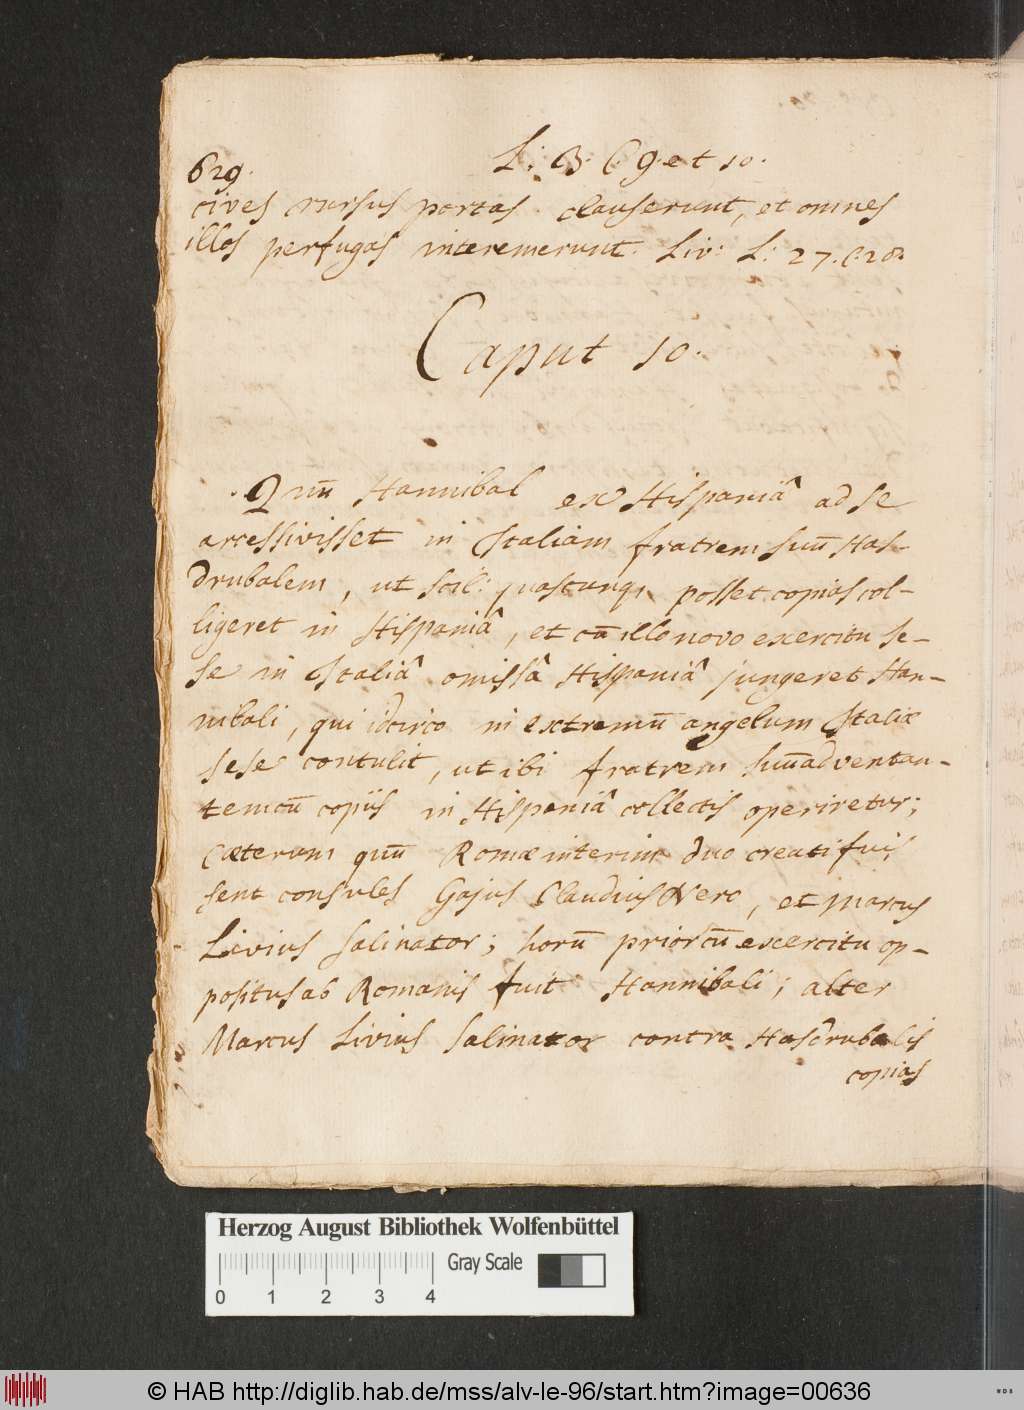 629.
L: 3. C. 9. et 10.
cives rursus portas clauserunt, et omnes
illos perfugas interemerunt. Liv: L: 27. C: 28.
Caput 10.
Quū Hannibal ex Hispaniâ ad se
arcessivisset in Italiam fratrem suū Has-
drubalem, ut scil: quascunq; posset copias col-
ligeret in Hispaniâ, et cū illo novo exercitu se-
se in Italiâ omissâ Hispaniâ jungeret Han-
nibali, qui idcirco in extremū angelum Italiæ
sese contulit, ut ibi fratrem suū adventan-
tem cū copiis in Hispaniâ collectis operiretur;
Cæterum quū Romæ interim duo creati fuis
sent consules Gajus Claudius Nero, et Marcus
Livius Salinator; horū prior cū exercitu op-
positus ab Romanis fuit Hannibali; alter
Marcus Livius Salinator contra Hasdrubalis
copias
Herzog August Bibliothek Wolfenbüttel
Gray Scale
0 1 2 3 4
© HAB http://diglib.hab.de/mss/alv-le-96/start.htm?image=00636